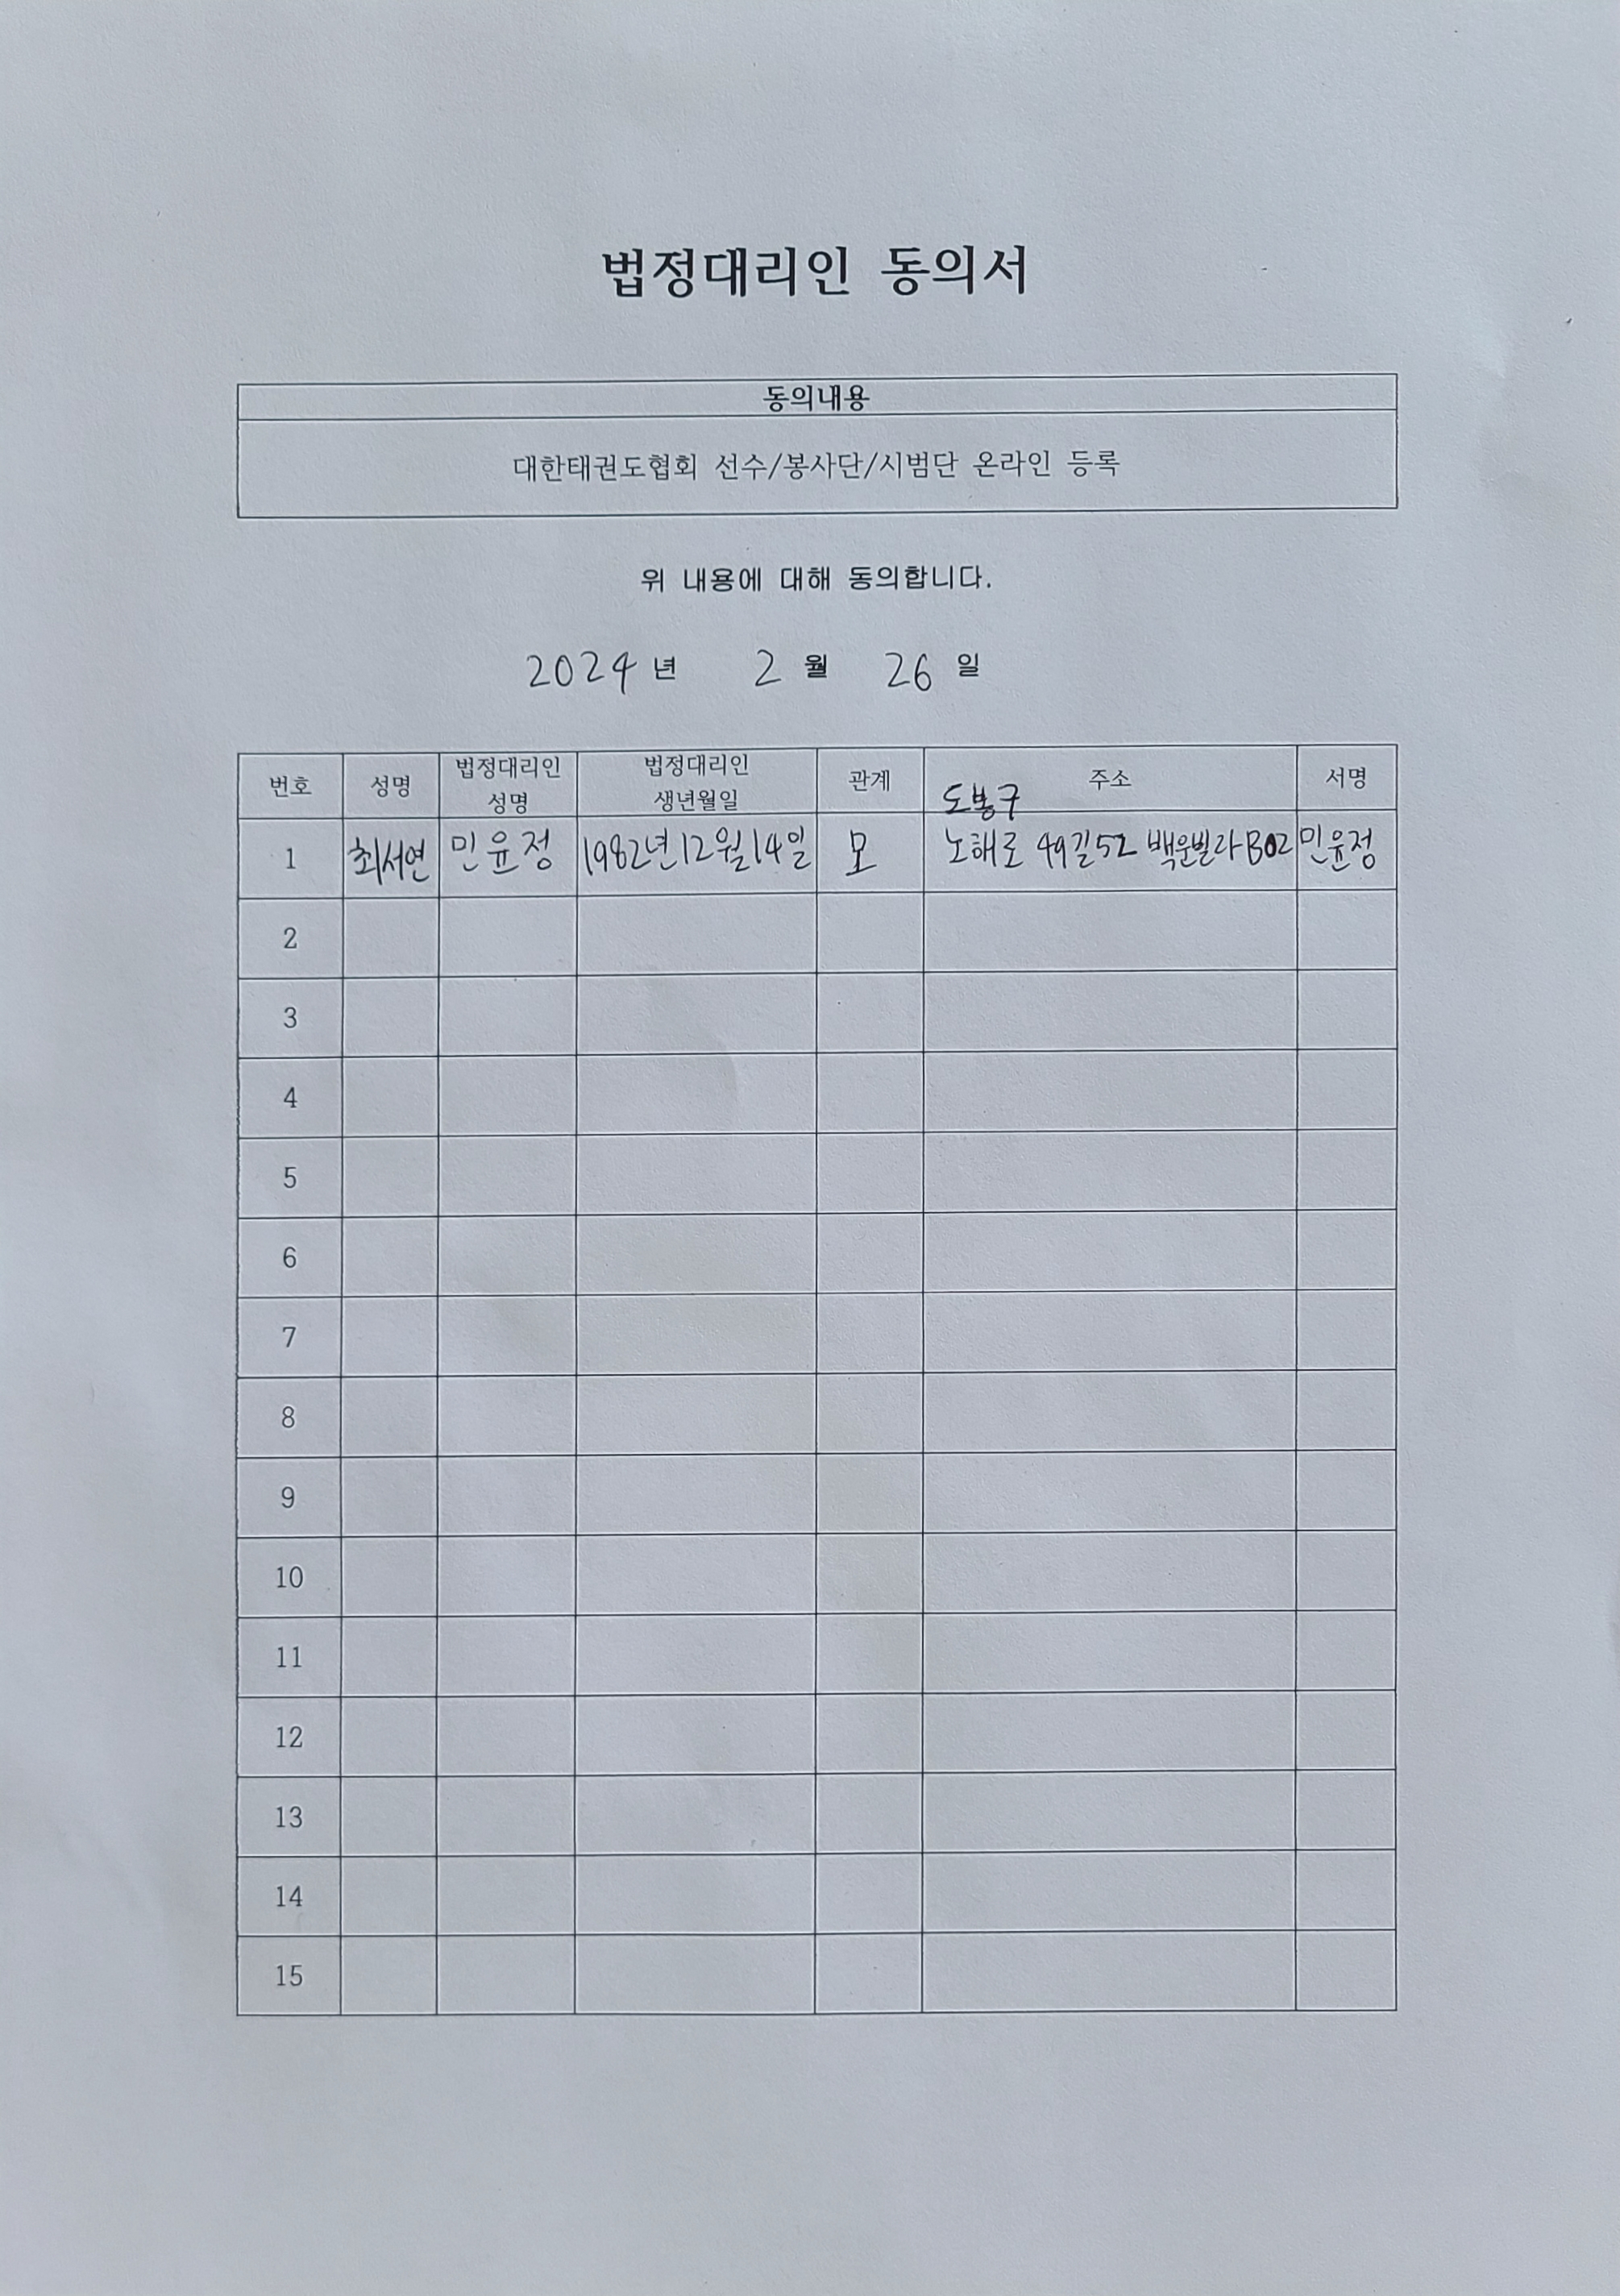 법정대리인 동의서
동의내용
대한태권도협회 선수/봉사단/시범단 온라인 등록
위 내용에 대해 동의합니다.
2024 년 2 월 26 일
번호 성명 법정대리인 성명 법정대리인 생년월일 관계 주소 서명
도봉구
1 최서연 민윤정 1982년12월14일 모 노해로 49길52 백운빌라B02 민윤정
2
3
4
5
6
7
8
9
10
11
12
13
14
15